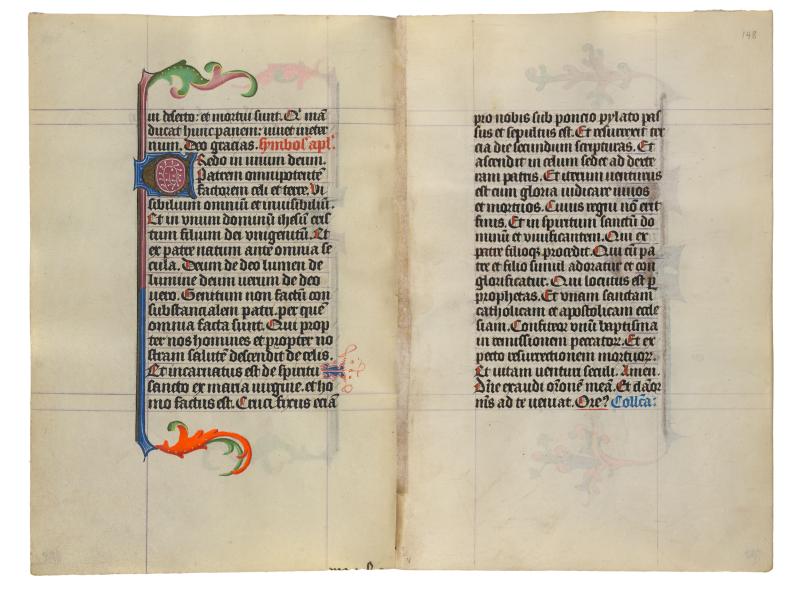 in deserto: et mortui sunt. Qͥ mā
ducat hunc panem: uiuet ineter
num. Deo gracias. Symbolꝰ apl'.
Credo in unum deum.
Patrem omnipotente
factorem celi et terre. Vi
sibilium omniū et inuisibiliū.
Et in vnum dominū ihesū cris
tum filium dei vnigenitū. Et
ex patre natum ante omnia se
cula. Deum de deo lumen de
lumine deum uerum de deo
uero. Genitum non factū con
substancialem patri. per quē
omnia facta sunt. Qui prop
ter nos homines et propter no
stram salutē descendit de celis.
Et incarnatus est de spiritu
sancto ex maria uirgine. et ho
mo factus est. Cruci fixus eciā
148
pro nobis sub poncio pylato pas
sus et sepultus est. Et resurrexit ter
cia die secundum scripturas. Et
ascendit in celum sedet ad dexte
ram patris. Et iterum uenturus
est cum gloria iudicare uiuos
et mortuos. Cuius regni nō erit
finis. Et in spiritum sanctū do
minū et viuificantem. Qui ex
patre filioqꝫ procedit. Qui cū pa
tre et filio simul adoratur et con
glorificatur. Qui locutus est ꝑ
prophetas. Et vnam sanctam
catholicam et apostolicam eccle
siam. Confiteor vnū baptisma
in remissionem peccatorꝝ. Et ex
pecto resurrectionem mortuorꝝ.
Et uitam uenturi seculi. Amen.
Dn̄e exaudi or̄onē meā. Et clāor
mꝰs ad te ueniat. Orē? Collc̄a: